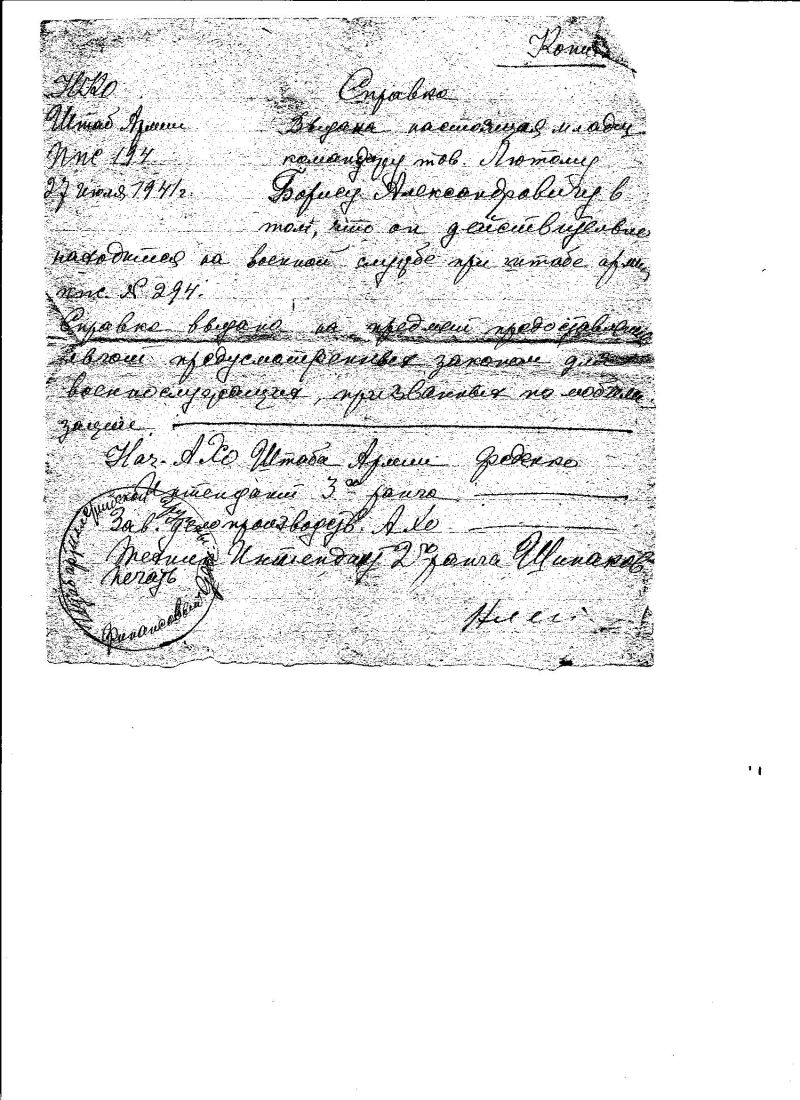 Копия
НКО
Справка
Штаб Армии
Выдана настоящая младш
ППС 194
командиру тов. Лютому
27 июля 1941 г.
Борису Александровичу в
том, что он действительно
находится на военной службе при штабе арми
ппс. № 294.
Справка выдана на предмет предоставления
льгот предусмотренных законом для
военнослужащих, призванных по мобили-
зации.
Нач. АХО Штаба Армии Феденко
Интендант 3го ранга
Зав. делопроизводств. АХО
Интендант 2го ранга Шинаков
печать
Финансовый